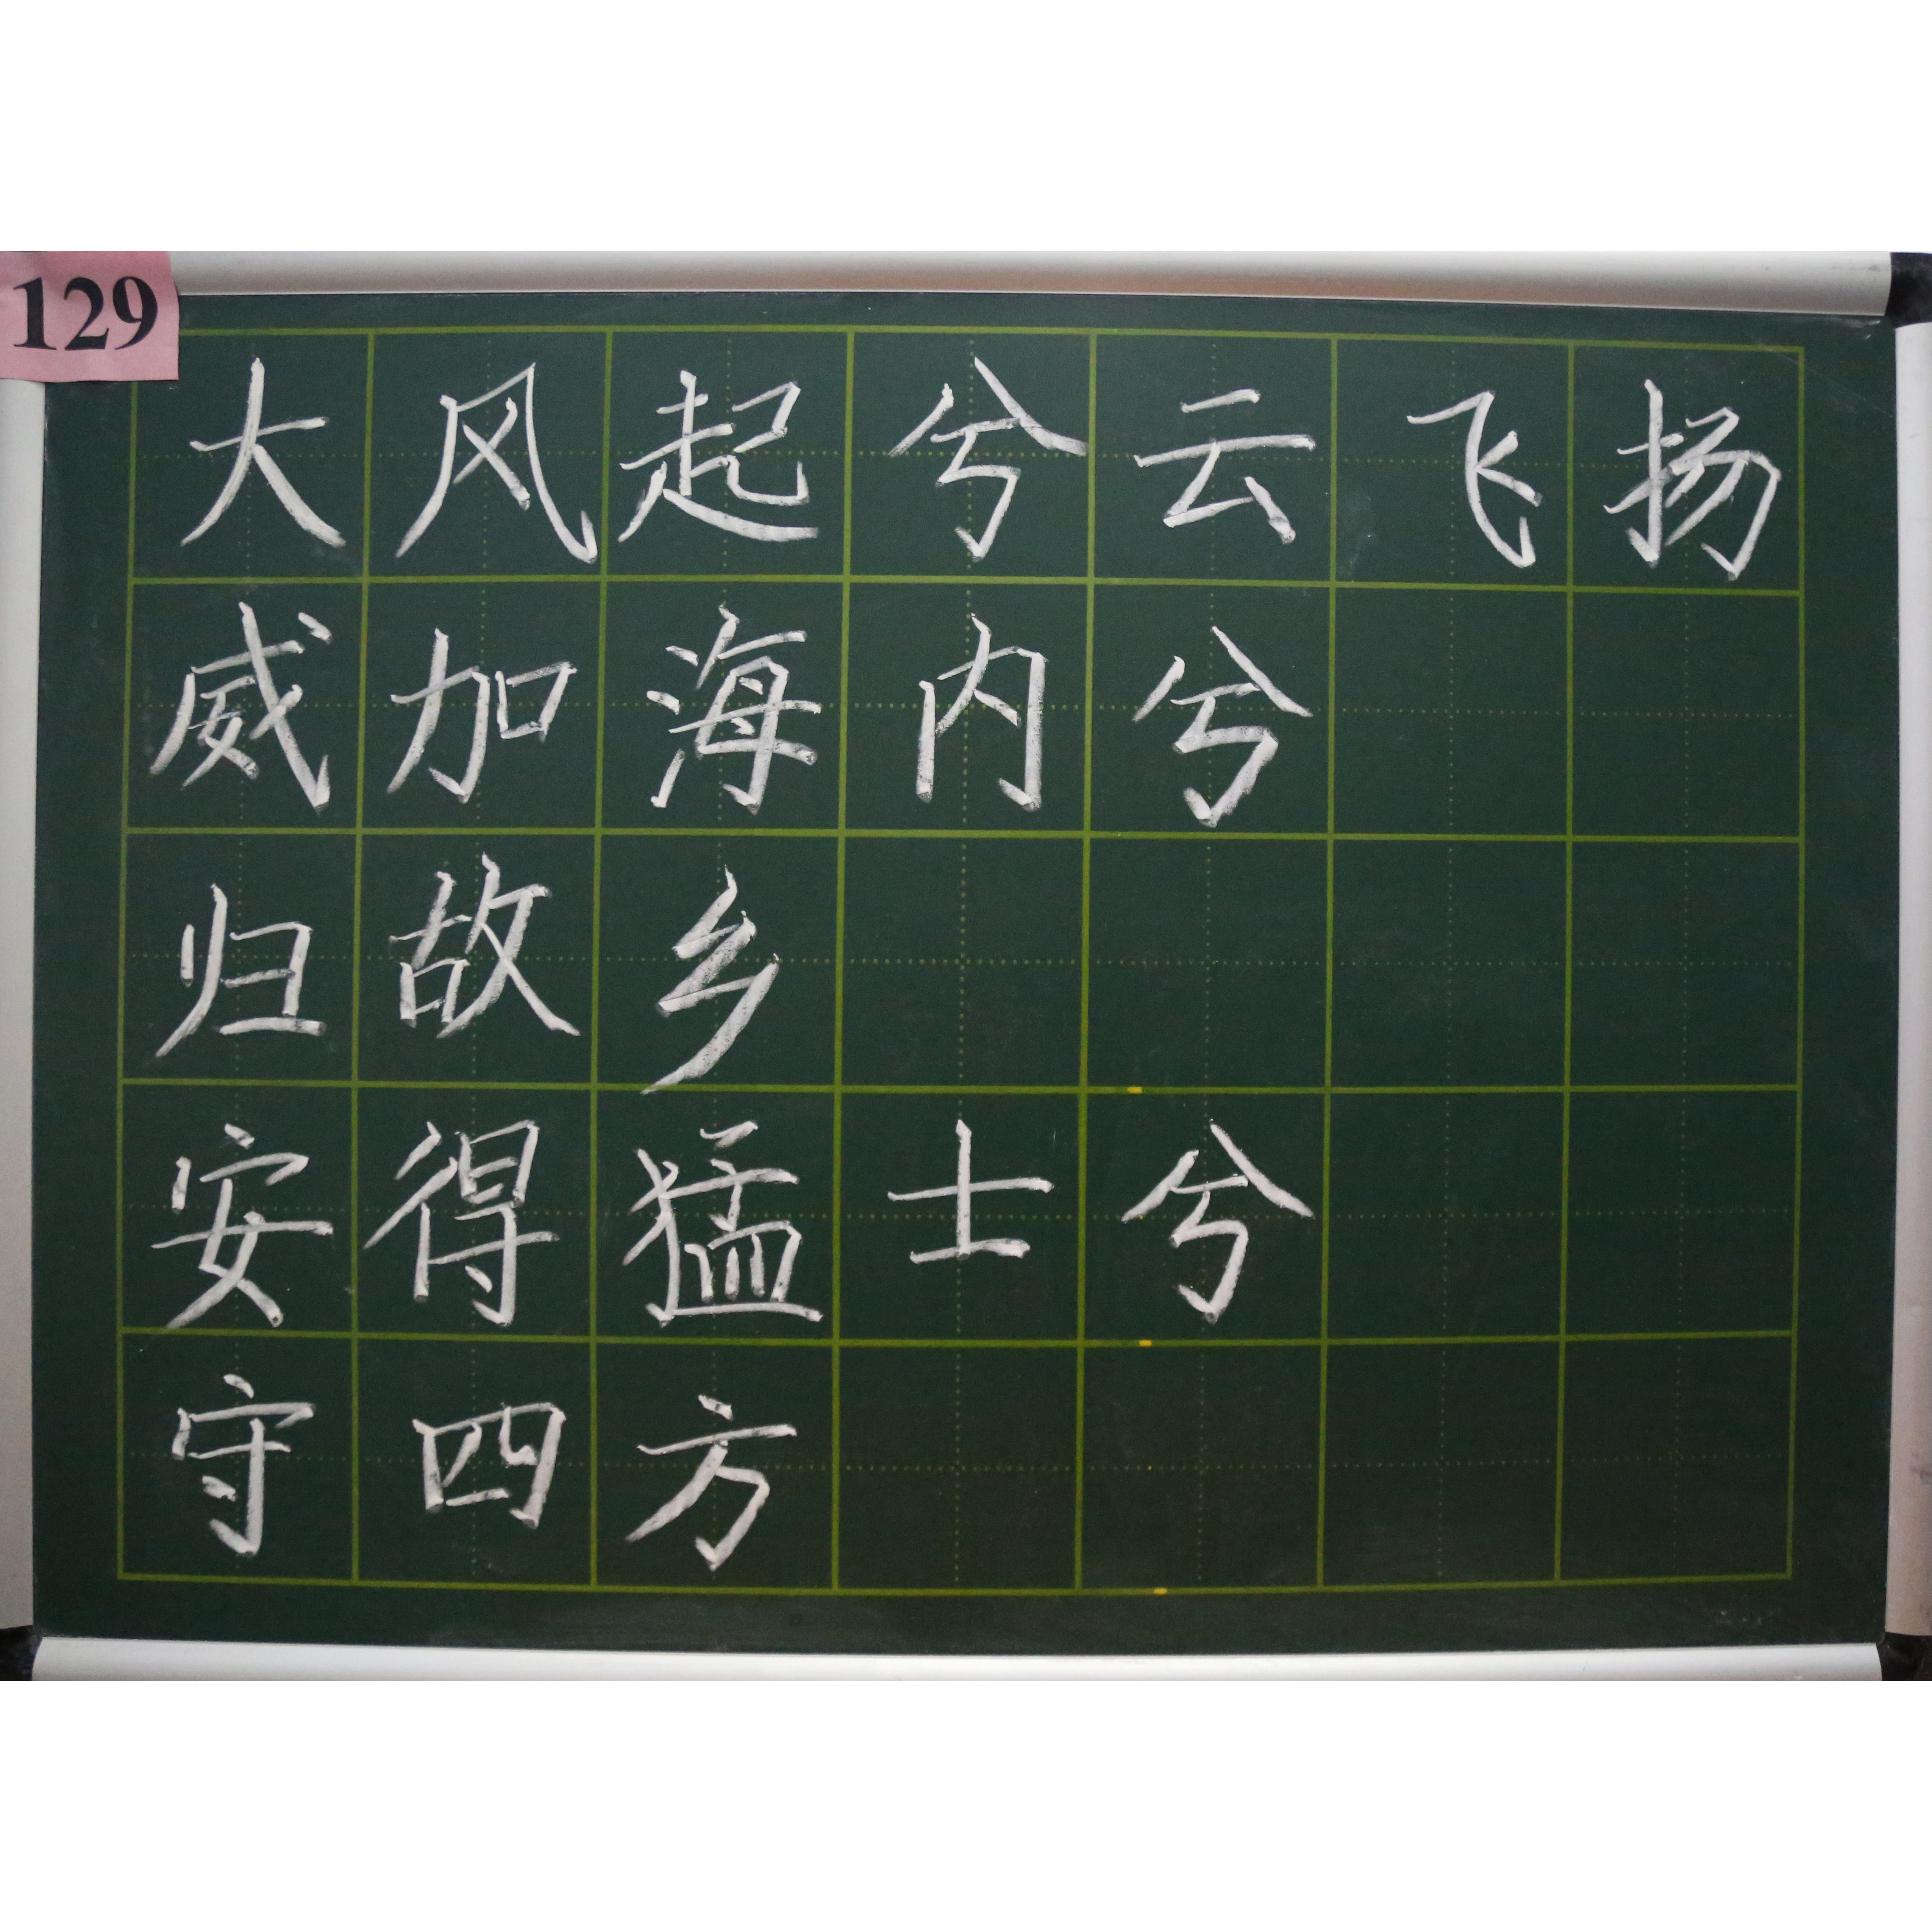 129
大风起兮云飞扬
威加海内兮
归故乡
安得猛士兮
守四方